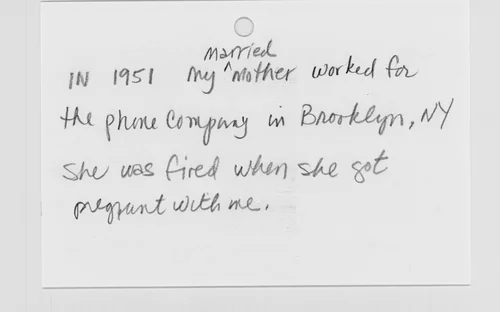 IN 1951 My ^married mother worked for
the phone company in Brooklyn, NY
She was fired when she got
pregnant with me.